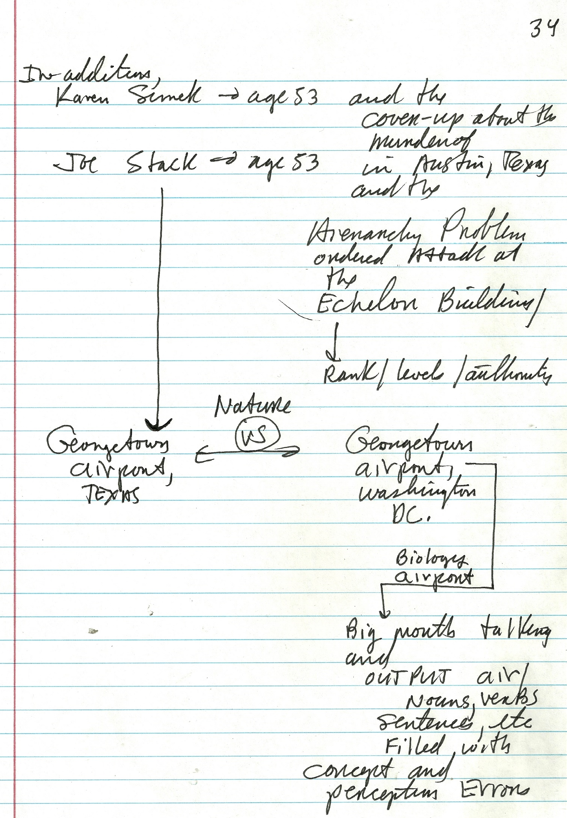 34
In addition,
Karen Simek → age 53 and the
cover-up about the
murder of
Joe Stack → age 53 in Austin, Texas
and the
Hierarchy Problem
ordered Attack at
the
Echelon Building/
Rank/levels/authority
Nature
VS
Georgetown
airport,
TEXAS
Georgetown
airport,
Washington
DC.
Biology
airport
Big mouth talking
and
OUTPUT air/
Nouns, verbs
sentences, etc
Filled with
concept and
perception Errors